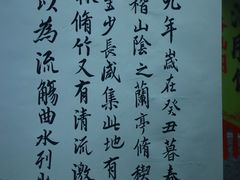 九年歲在癸丑暮春
稽山陰之蘭亭脩禊
至少長咸集此地有
林脩竹又有清流激
以為流觴曲水列坐